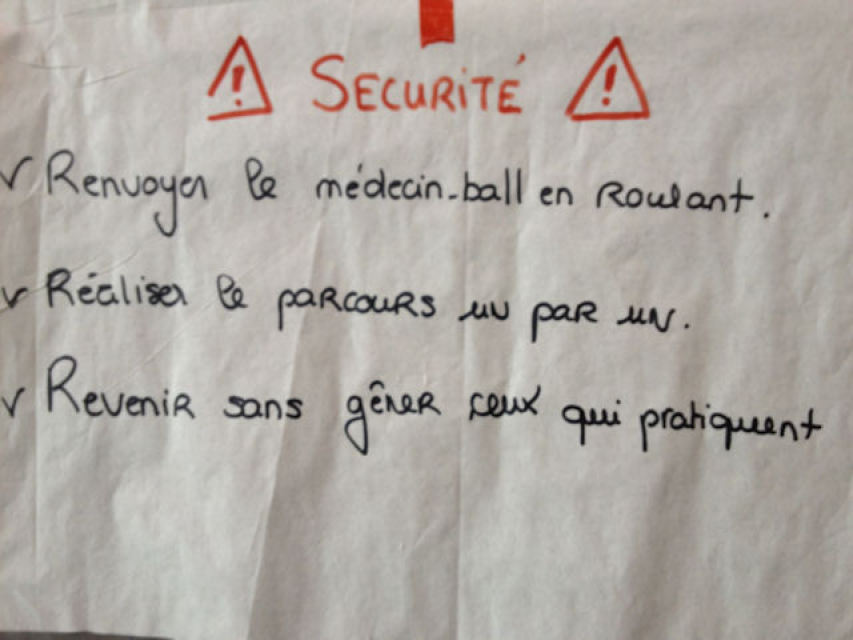 ! SECURITÉ !
✓ Renvoyer le médecin-ball en Roulant.
✓ Réaliser le parcours un par un.
✓ Revenir sans gêner ceux qui pratiquent